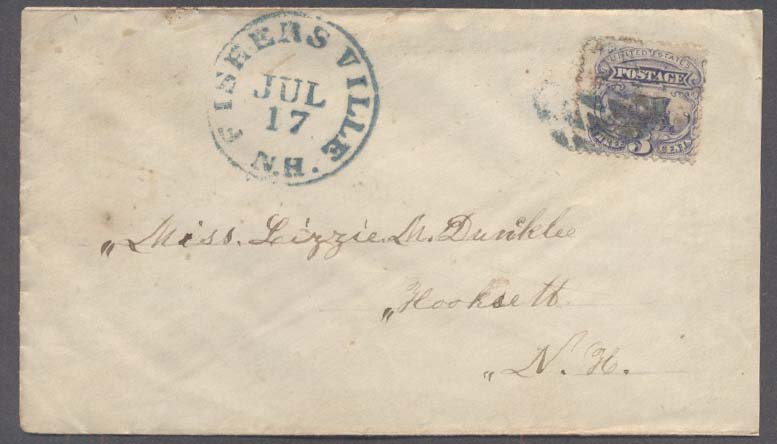 FISHERSVILLE
JUL
17
N.H.
UNITED STATES
POSTAGE
3
„Miss. Lizzie. M. Dunklee
„Hooksett.
„N. H.